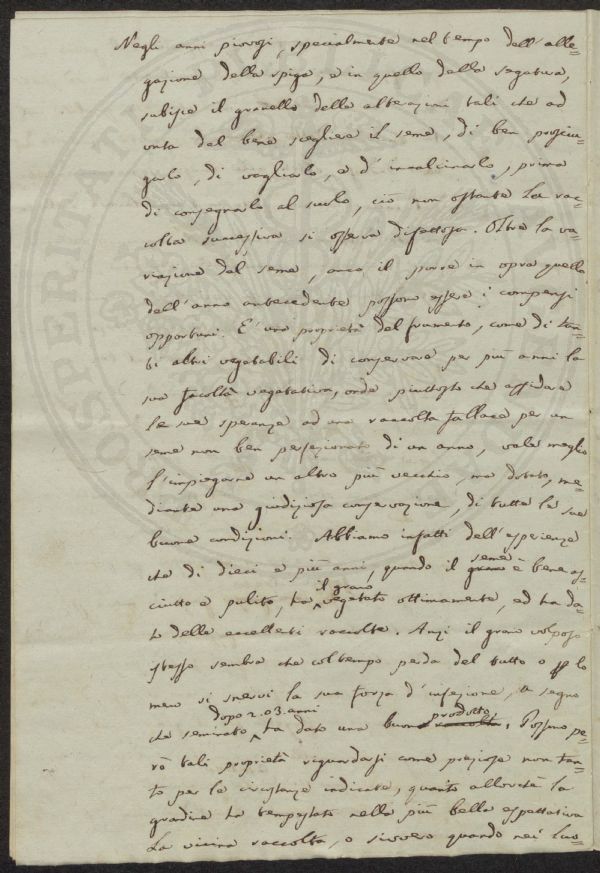 Negli anni piovosi, specialmente nel tempo dell'alle-
gazione della spiga, e in quello della segatura,
subisce il granello delle alterazioni tali che ad
onta del bene scegliere il seme, di ben prosciu-
garlo, di vagliarlo, e d'incalcinarlo, prima
di consegnarlo al suolo, ciò non ostante la rac-
colta successiva si osserva difettosa. Oltre la va-
riazione del seme, anco il porre in opra quello
dell'anno antecedente possono essere i compensi
opportuni. E' una proprietà del frumento, come di tan-
ti altri vegetabili di conservare per più anni la
sua facoltà vegetativa, onde piuttosto che affidare
le sue speranze ad una raccolta fallace per un
seme non ben perfezionato di un anno, vale meglio
l'impiegarne un altro più vecchio, ma dotato, me-
diante una giudiziosa conservazione, di tutte le sue
buone condizioni. Abbiamo infatti dell'esperienze
che di dieci e più anni, quando il grano seme è bene as-
ciutto e pulito, ha il grano vegetato ottimamente, ed ha da-
to delle eccellenti raccolte. Anzi il grano volposo
stesso sembra che col tempo perda del tutto o lo
meno si snervi la sua forza d'infezione, a segno
che seminato dopo 2. o 3. anni ha dato una buon raccolta prodotto. Possono pe-
rò tali proprietà riguardarsi come preziose non tan-
to per le circostanze indicate, quanto allorchè la
grandine ha tempestato nella più bella espettativa
la vicina raccolta, o sivvero quando nei luo-